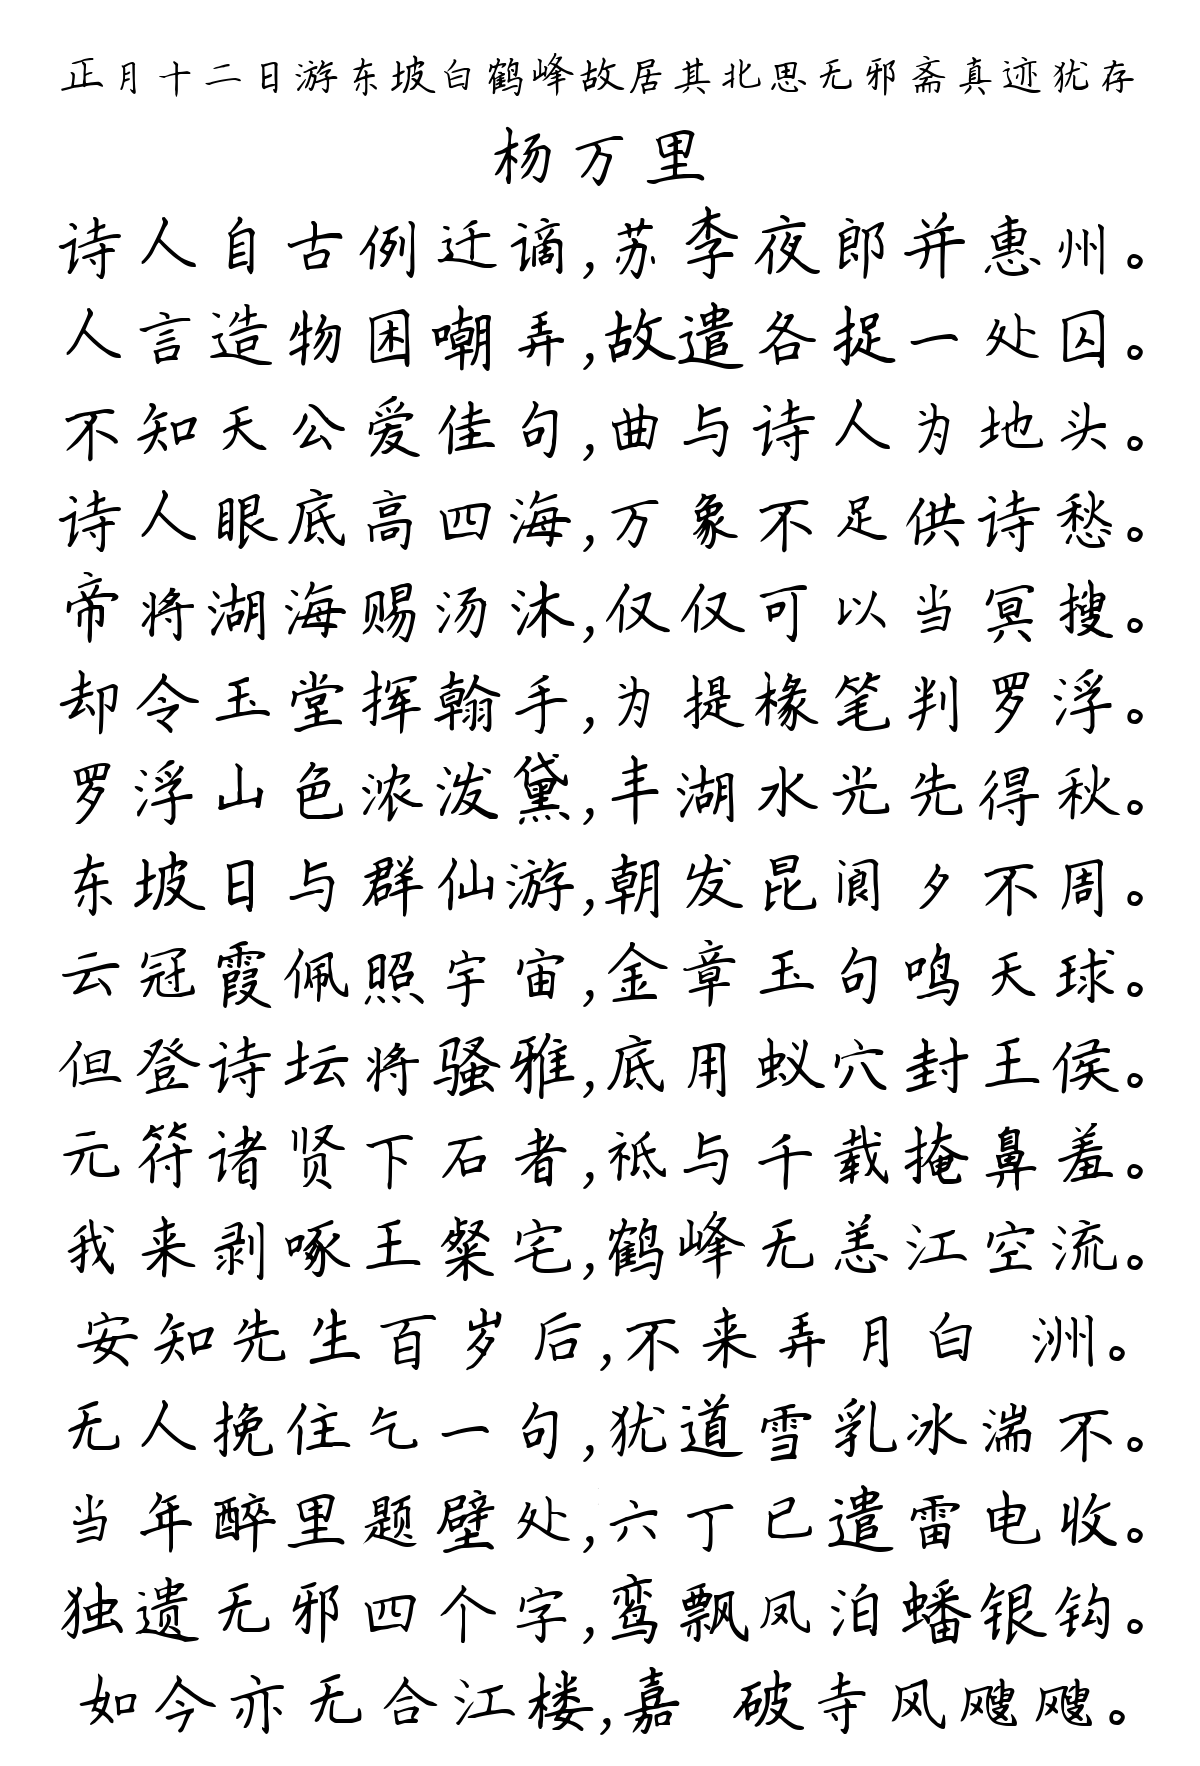 正月十二日游东坡白鹤峰故居其北思无邪斋真迹犹存
杨万里
诗人自古例迁谪,苏李夜郎并惠州。
人言造物困嘲弄,故遣各捉一处囚。
不知天公爱佳句,曲与诗人为地头。
诗人眼底高四海,万象不足供诗愁。
帝将湖海赐汤沐,仅仅可以当冥搜。
却令玉堂挥翰手,为提椽笔判罗浮。
罗浮山色浓泼黛,丰湖水光先得秋。
东坡日与群仙游,朝发昆阆夕不周。
云冠霞佩照宇宙,金章玉句鸣天球。
但登诗坛将骚雅,底用蚁穴封王侯。
元符诸贤下石者,祗与千载掩鼻羞。
我来剥啄王粲宅,鹤峰无恙江空流。
安知先生百岁后,不来弄月白 洲。
无人挽住乞一句,犹道雪乳冰湍不。
当年醉里题壁处,六丁已遣雷电收。
独遗无邪四个字,鸾飘凤泊蟠银钩。
如今亦无合江楼,嘉 破寺风飕飕。